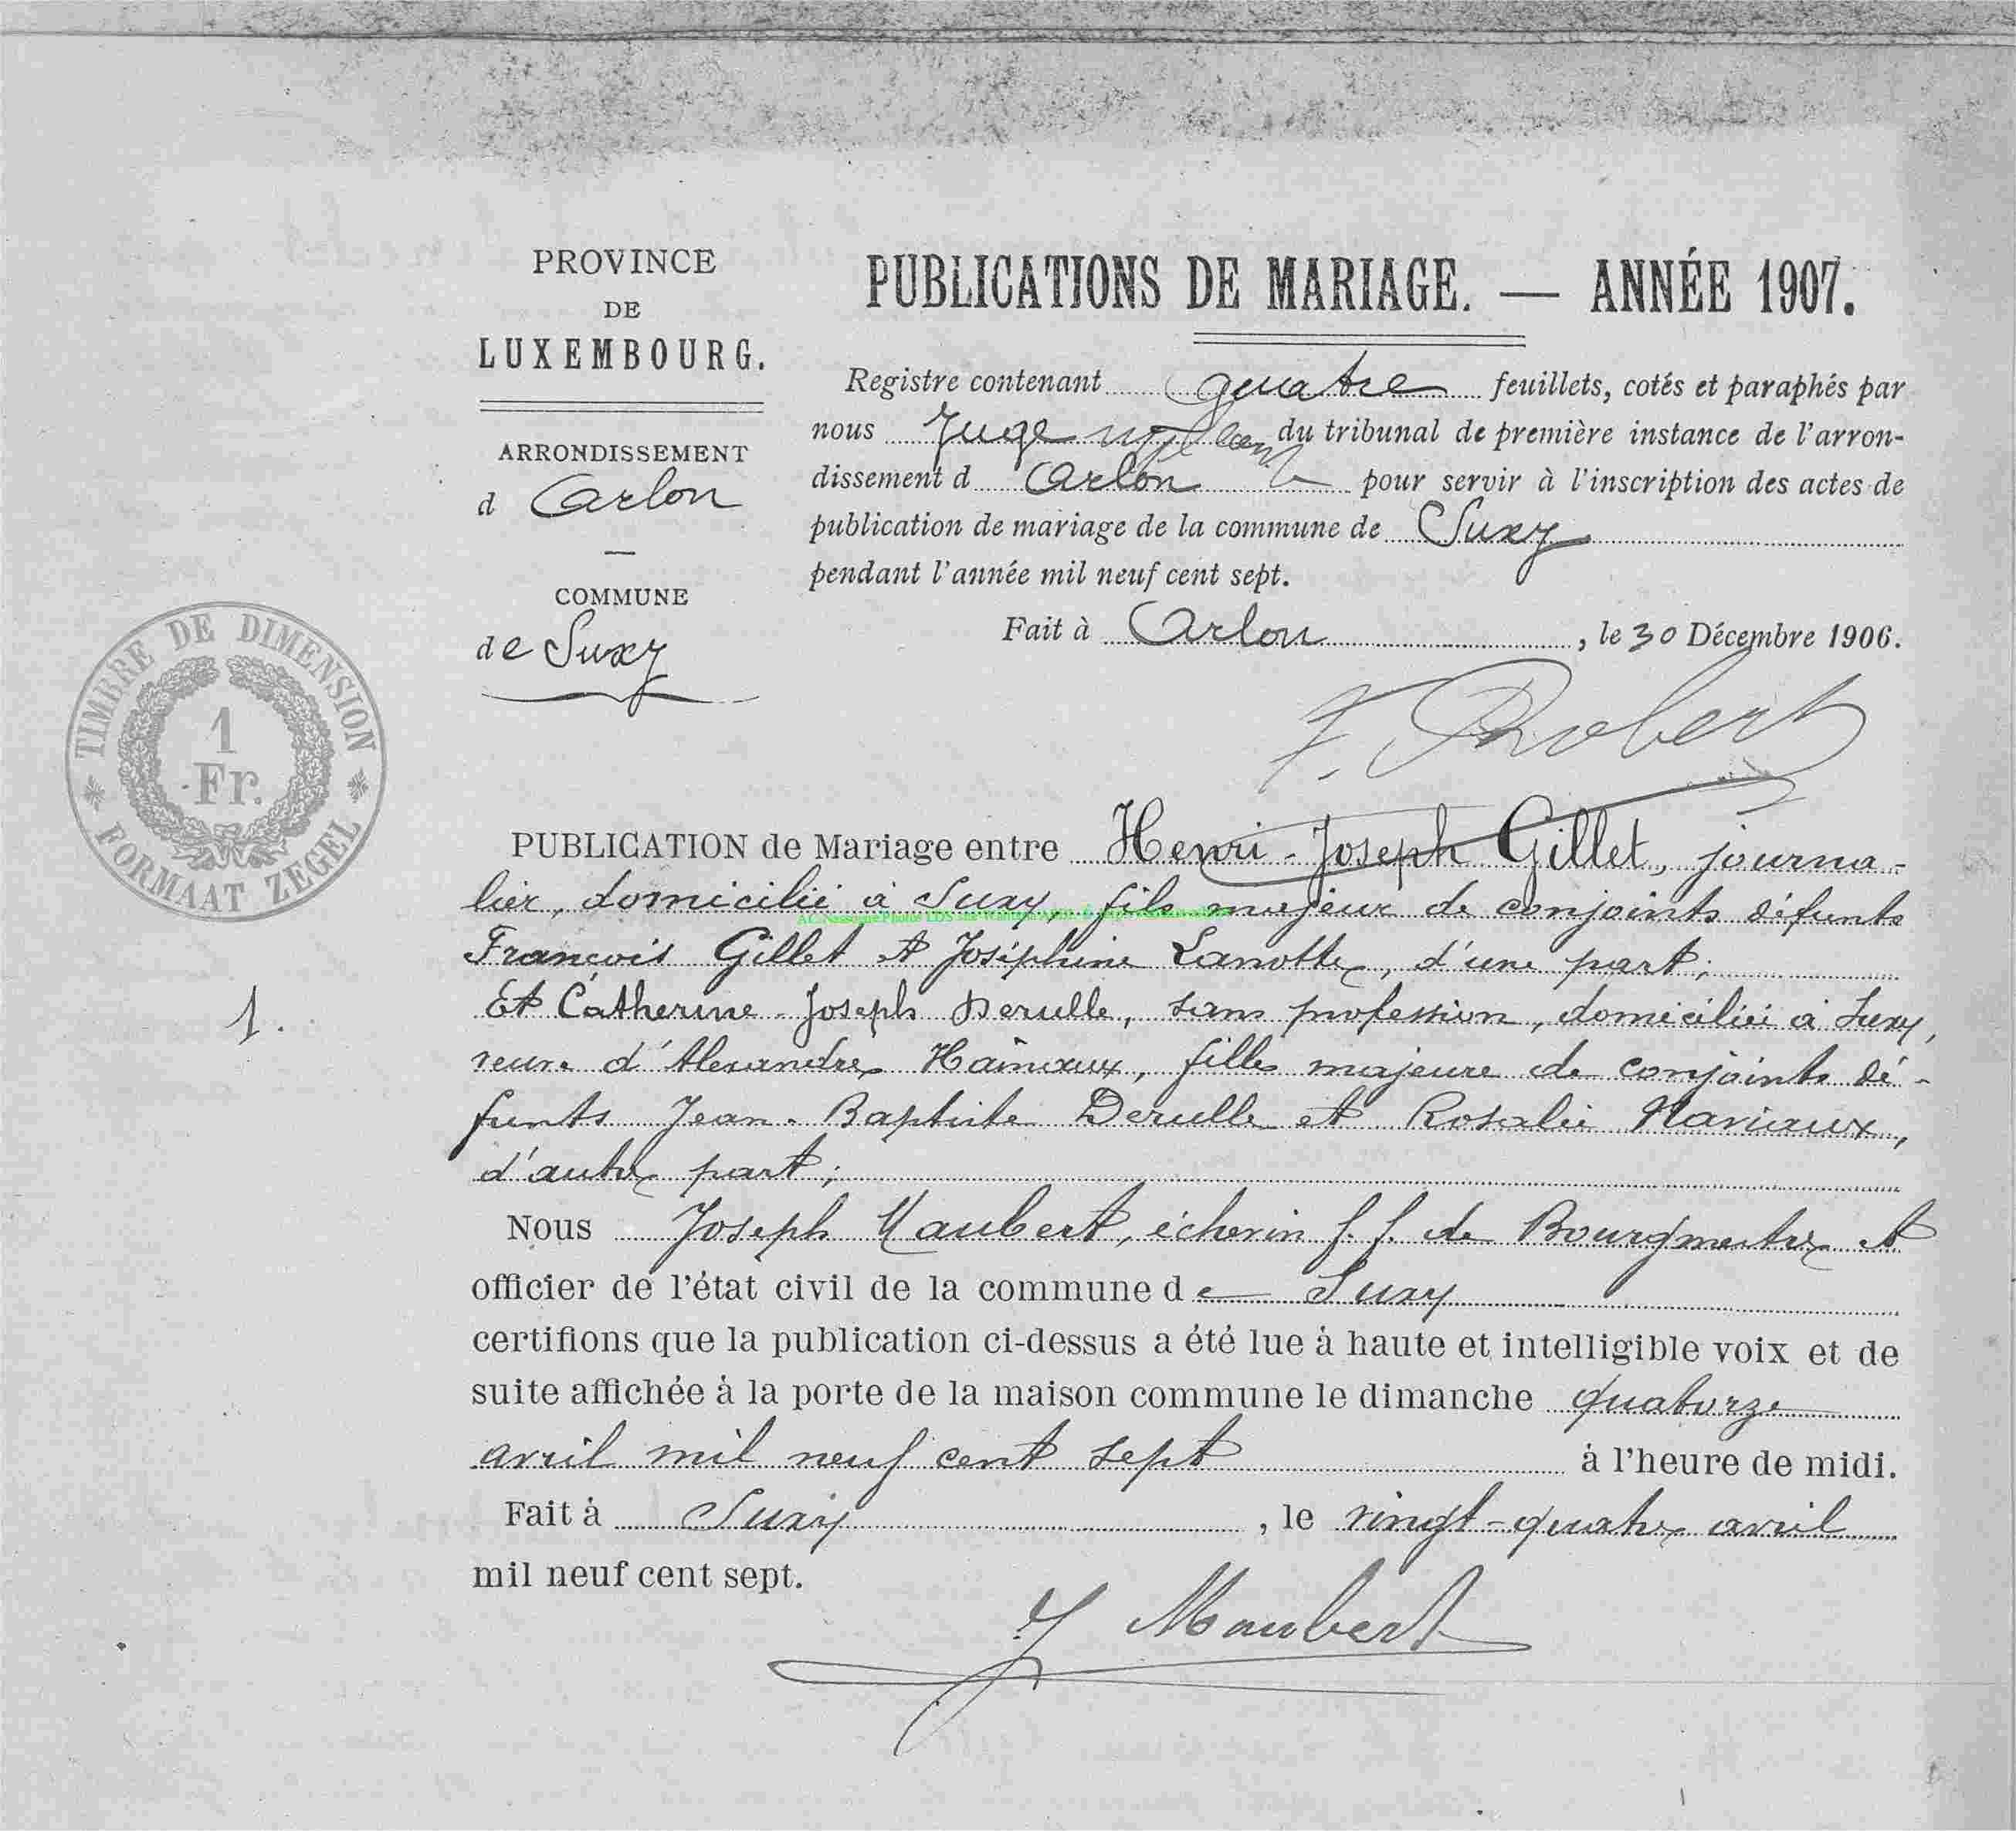 PROVINCE
DE
LUXEMBOURG.
ARRONDISSEMENT
d'Arlon
COMMUNE
de Suxy
TIMBRE DE DIMENSION
1
Fr.
FORMAAT ZEGEL
1.
PUBLICATIONS DE MARIAGE. — ANNÉE 1907.
Registre contenant quatre feuillets, cotés et paraphés par
nous Juge du tribunal de première instance de l'arron-
dissement d'Arlon pour servir à l'inscription des actes de
publication de mariage de la commune de Suxy
pendant l'année mil neuf cent sept.
Fait à Arlon, le 30 Décembre 1906.
F. Robert
PUBLICATION de Mariage entre Henri-Joseph Gillet, journa-
lier, domicilié à Suxy, fils majeur de conjoints défunts
François Gillet et Joséphine Lamotte, d'une part;
Et Catherine-Joseph Derulle, sans profession, domiciliée à Suxy,
veuve d'Alexandre Hainaux, fille majeure de conjoints dé-
funts Jean-Baptiste Derulle et Rosalie
d'autre part;
Nous Joseph Maubert, échevin f.f. de Bourgmestre et
officier de l'état civil de la commune de Suxy
certifions que la publication ci-dessus a été lue à haute et intelligible voix et de
suite affichée à la porte de la maison commune le dimanche quatorze
avril mil neuf cent sept à l'heure de midi.
Fait à Suxy, le vingt-quatre avril
mil neuf cent sept.
J Maubert